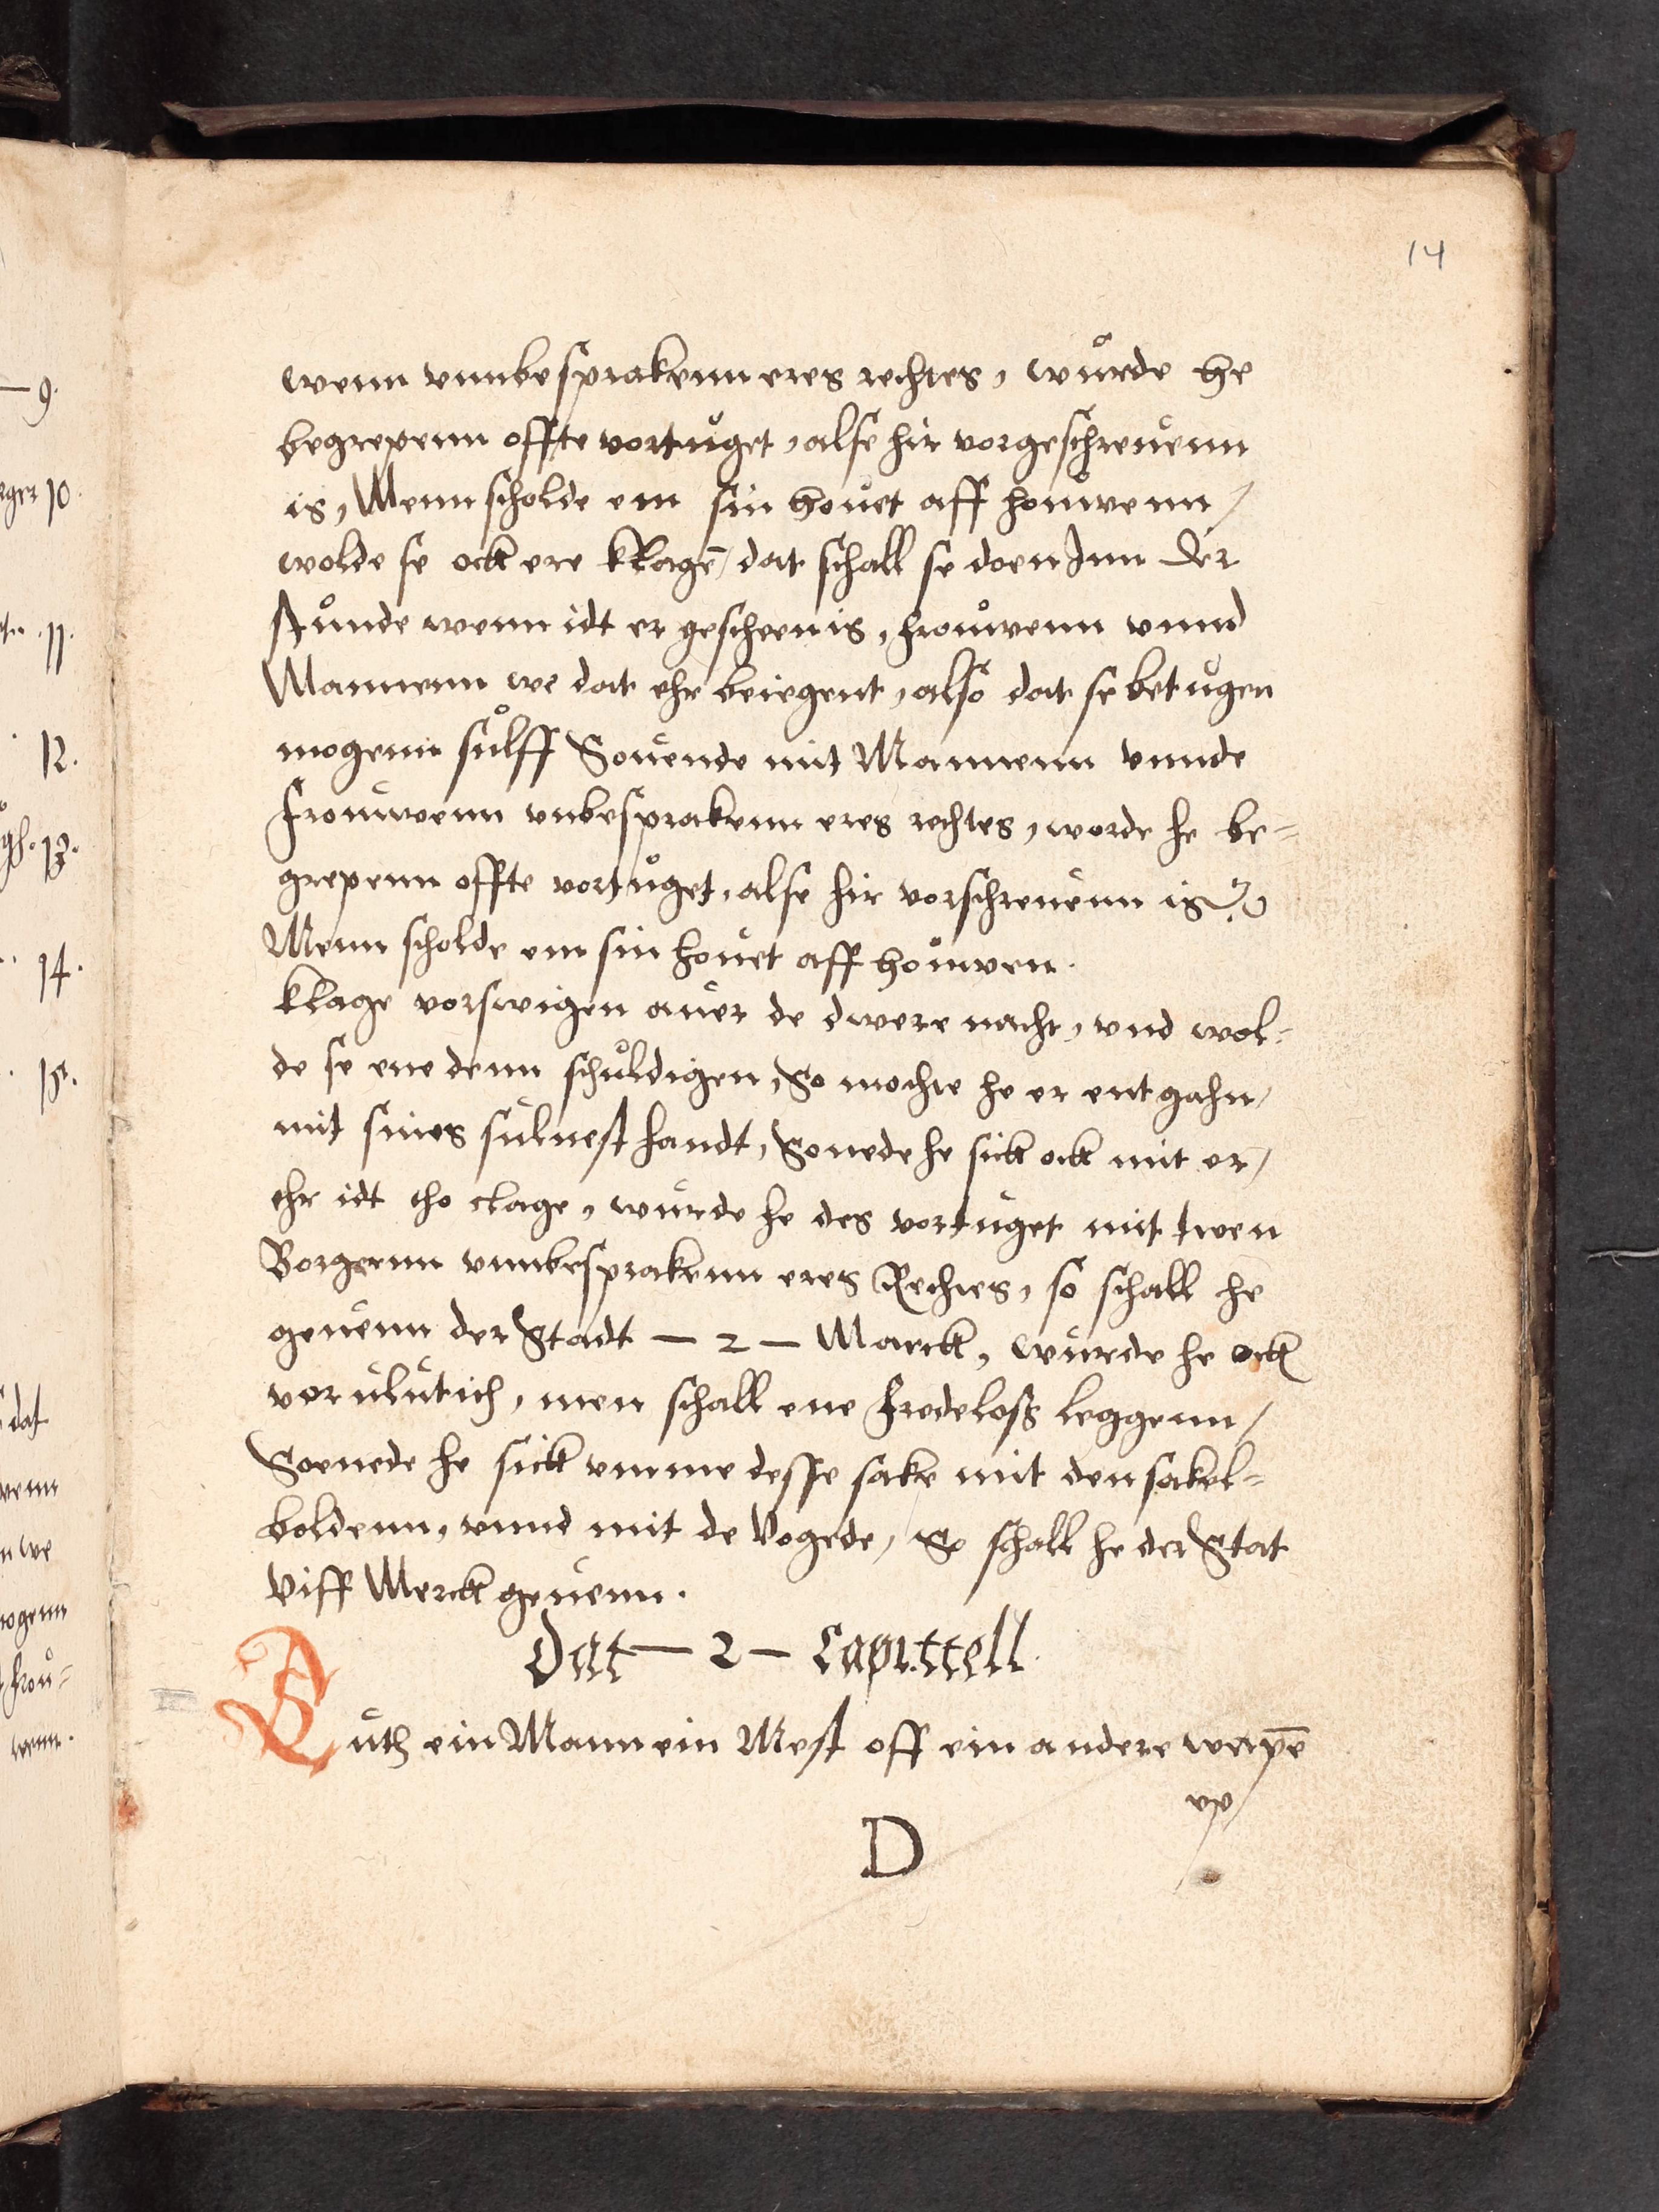 14
wenn vnnbesprakenn eres rechtes, wůrde he
begrepenn offte vortuget, alse hir vorgeschreuenn
is, Menn scholde em sin houet aff houwenn/
wolde se ock ere klagē/ dat schall se doen Inn der
stůnde wenn idt er gescheen is, frouwenn vnnd
Mannenn we dat ehr beiegent, also dat se betugen
mogenn sůlff Souende mit Mannenn vnnde
frouwenn vnbesprakenn eres rechtes, worde he be=
grepenn offte vortuget, alse hir vorschreuenn is
Menn scholde em sin houet aff houwen.
klage vorswigen auer de dwere nacht, vnd wol=
de se ene denn schuldigen, So mochte he er entgahn/
mit sines sulnest handt, Sonede he sick ock mit er/
ehr idt tho clage, wurde he des vortuget mit twen
Borgernn vnnbesprakenn eres Rechtes, so schall he
geuenn der Stadt — 2 — Marck, wurde he ock
vorulutich, men schall ene fredeloß leggenn/
Soenede he sick vmme desse sake mit den sakel=
boldenn, vnnd mit de Vogede, So schall he der Stat
Viff Merck geuenn.
Dat — 2 — Capittell.
Tuth ein Mann ein Mest off ein andere wapē
vp/
D
9.
10.
11.
12.
13.
14.
15.
dat
we
frou=